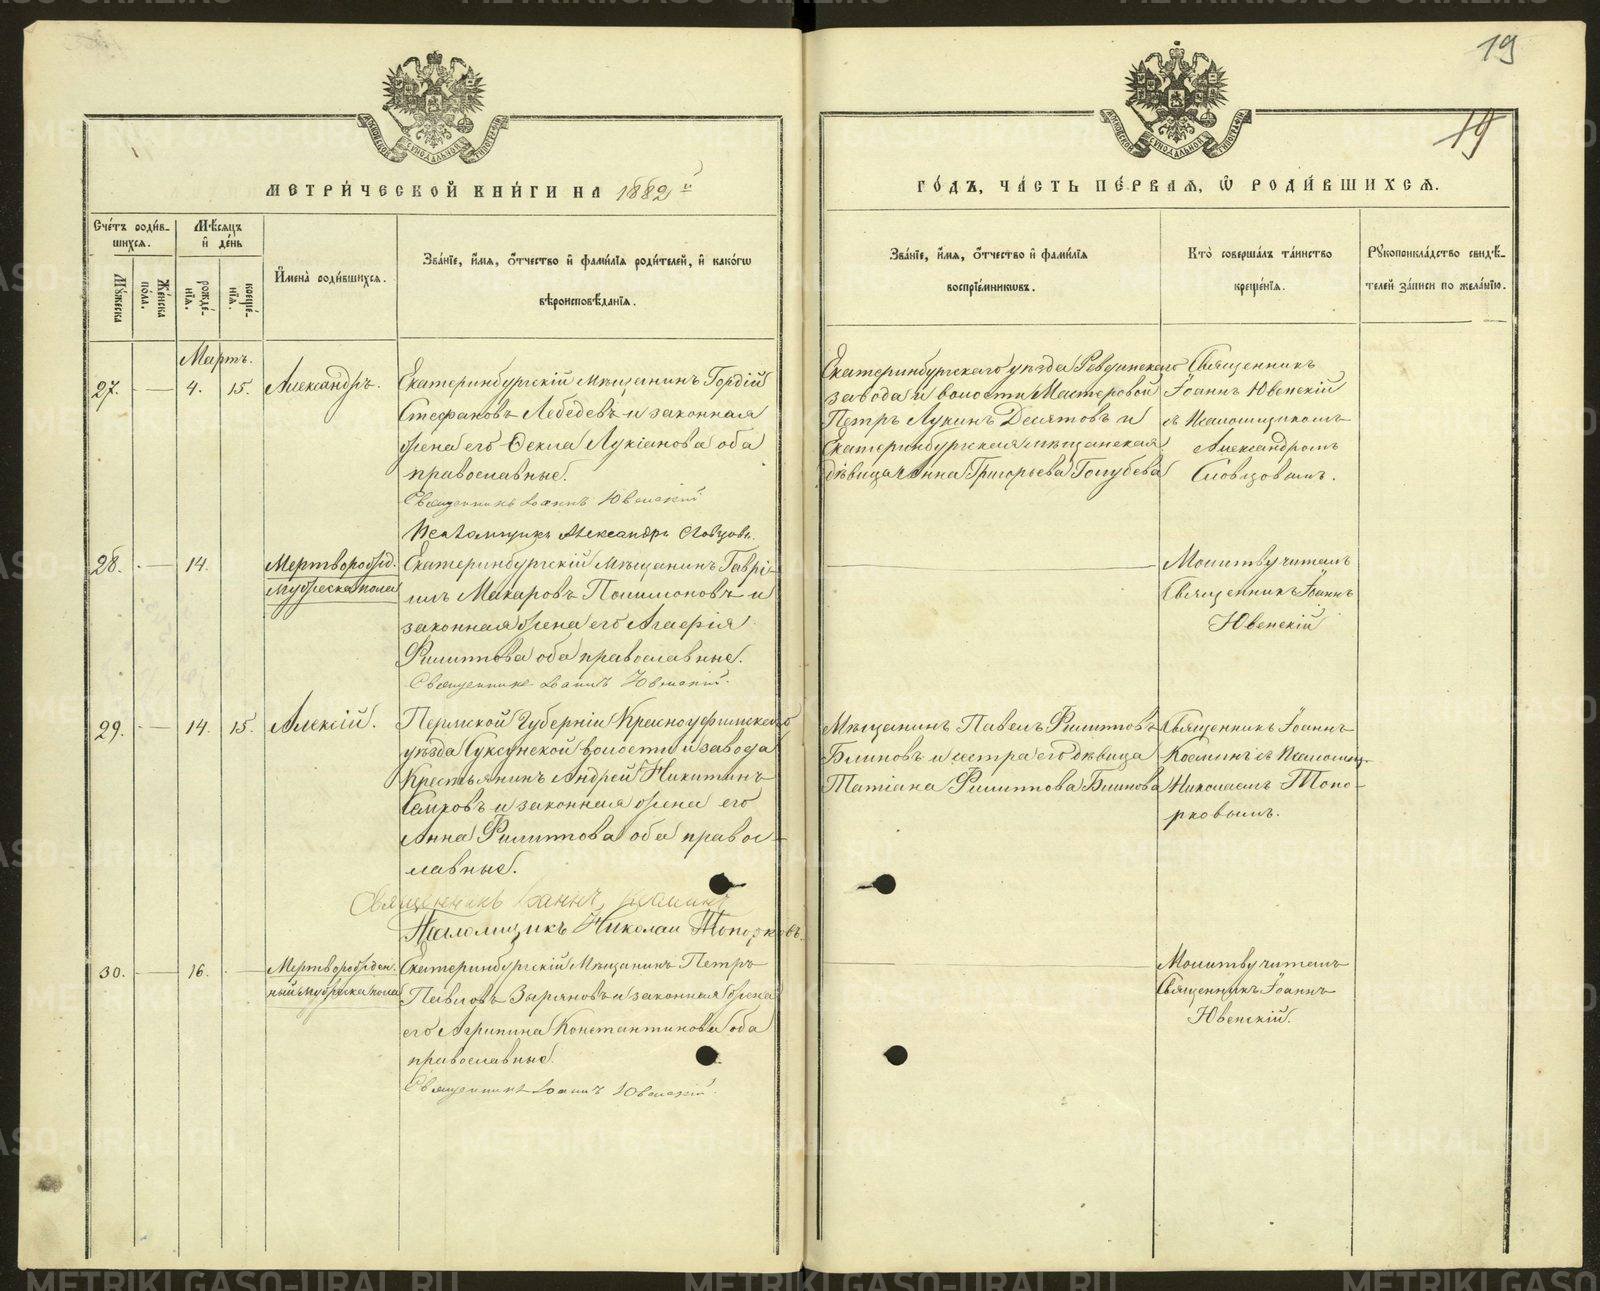 19
19
МЕТРИ́ЧЕСКОЙ КНИ́ГИ НА 1882й
ГО́ДЪ, ЧА́СТЬ ПЕ́РВАЯ, Ѡ РОДИ́ВШИХСѦ.
Счетъ роди́в-
шихся.
Мꙋжеска
Же́нска
по́ла.
Мѣ́сяцъ
и де́нь
рожде́-
нїя.
креще́-
нїя.
И҆мена̀ роди́вшихся.
Зва́нїе, и҆́мя, ѻ҆́тчество и҆ фами́лїя роди́телей, и҆ како́гѡ
вѣроисповѣ́данїя.
Зва́нїе, и҆́мя, ѻ҆́тчество и҆ фами́лїя
воспрїе́мникѡвъ.
Кто̀ соверша́лъ та́инство
креще́нїя.
Рꙋкоприкла́дство свидѣ́-
телей за́писи по жела́нїю.
Мартъ.
27. — 4. 15. Александръ.
Екатеринбургскій мѣщанинъ Гордій
Стефановъ Лебедевъ и законная
жена его Ѳекла Лукіанова оба
православные.
Священникъ Іоаннъ Ювенскій
Псаломщикъ Александръ Словцовъ.
Екатеринбургскаго уѣзда Ревдинскаго
завода и волости Мастеровой
Петръ Лукинъ Десятовъ и
Екатеринбургская мѣщанская
дѣвица Анна Григорьева Голубева
Священникъ
Іоаннъ Ювенскій
съ Псаломщикомъ
Александромъ
Словцовымъ.
28. — 14. Мертворожд.
мужеска пола
Екатеринбургскій Мѣщанинъ Гаврі-
илъ Макаровъ Филимоновъ и
законная жена его Агаѳія
Филиппова оба православные.
Священникъ Іоаннъ Ювенскій.
Молитву читалъ
Священникъ Іоаннъ
Ювенскій
29. — 14. 15. Алексій.
Пермской Губерніи Красноуфимскаго
уѣзда Суксунской волости и завода
Крестьянинъ Андрей Никитинъ
и законная жена его
Анна Филиппова оба правос-
лавные.
Священникъ Іоаннъ Косминъ
Псаломщикъ Николай Топорковъ.
Мѣщанинъ Павелъ Филипповъ
Блиновъ и сестра его дѣвица
Татіана Филиппова Блинова
Священникъ Іоаннъ
Косминъ съ Псаломщ.
Николаемъ Топо-
рковымъ.
30. — 16. — Мертворожден-
ный мужеска пола
Екатеринбургскій Мѣщанинъ Петръ
Павловъ Зыряновъ и законная жена
его Агрипина Константинова оба
православные.
Священникъ Іоаннъ Ювенскій
Молитву читалъ
Священникъ Іоаннъ
Ювенскій.
METRIKI.GASO-URAL.RU